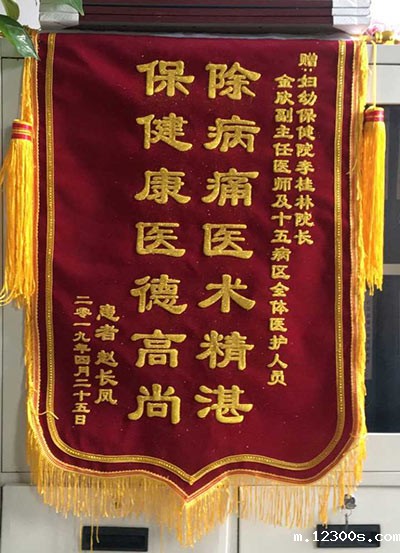 赠:妇幼保健院李桂林院长
金欣副主任医师及十五病区全体医护人员
除病痛医术精湛
保健康医德高尚
患者 赵长凤
二零一九年四月二十五日
m.12300s.com